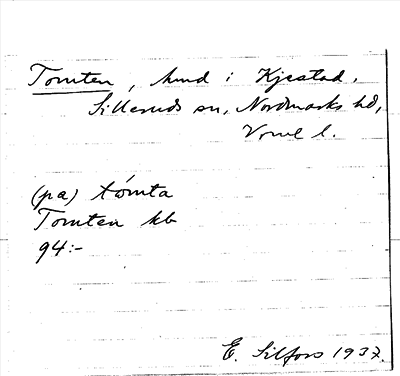 Tomten, hmd i Kjestad,
Silleruds sn, Nordmarks hd,
Vrml l.
(pa) tómta
Tomten kb
94:-
E. Silfors 1937.